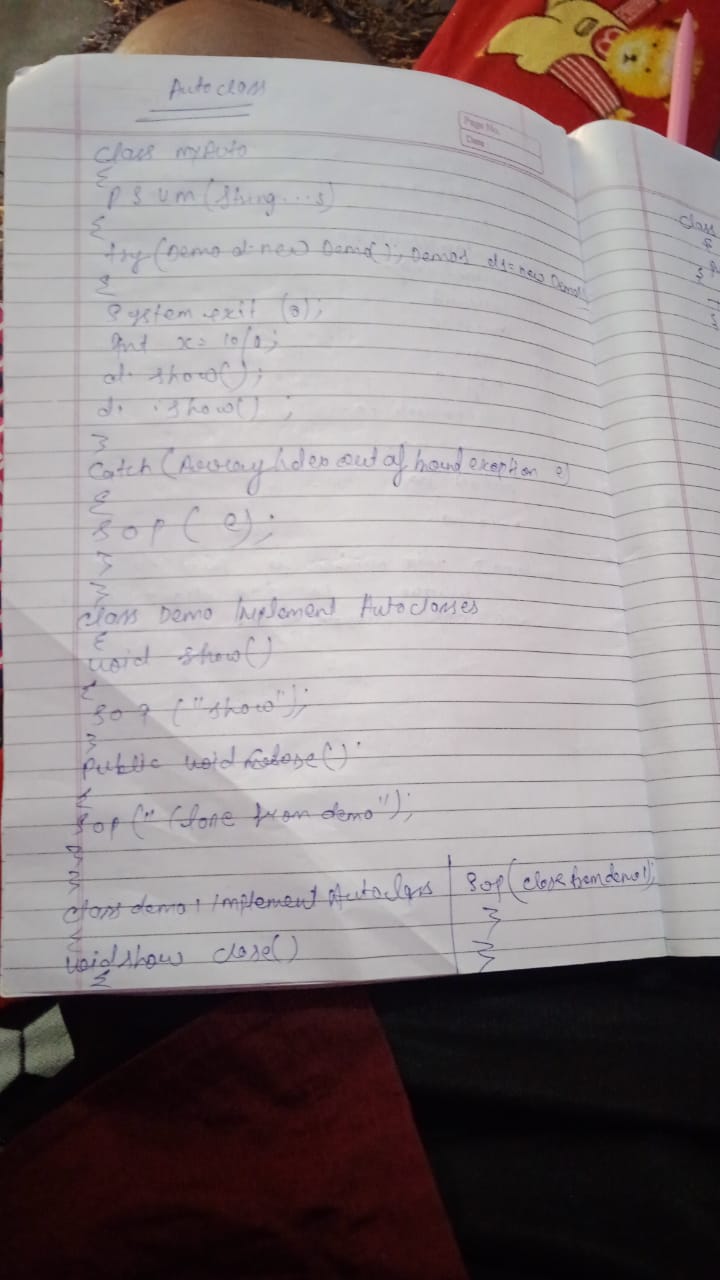 Autoclass
Page No.
Date
class myAuto
{
P S V m (String...s)
{
try (Demo d = new Demo(); Demo1 d1 = new Demo1
{
System.exit (0);
Int x = 10/0;
d. show();
d1 . show() ;
}
Catch (Array Index out of bound exeption e)
{
Sop ( e);
}
}
class Demo Implement Autoclosses
{
void show()
{
Sop ("show");
}
public void close()
{
Sop (" Close from demo");
}
}
class demo1 Implement Autoclass
{
void show close()
{
Sop (close from demo1);
}
}
class
{
}
}